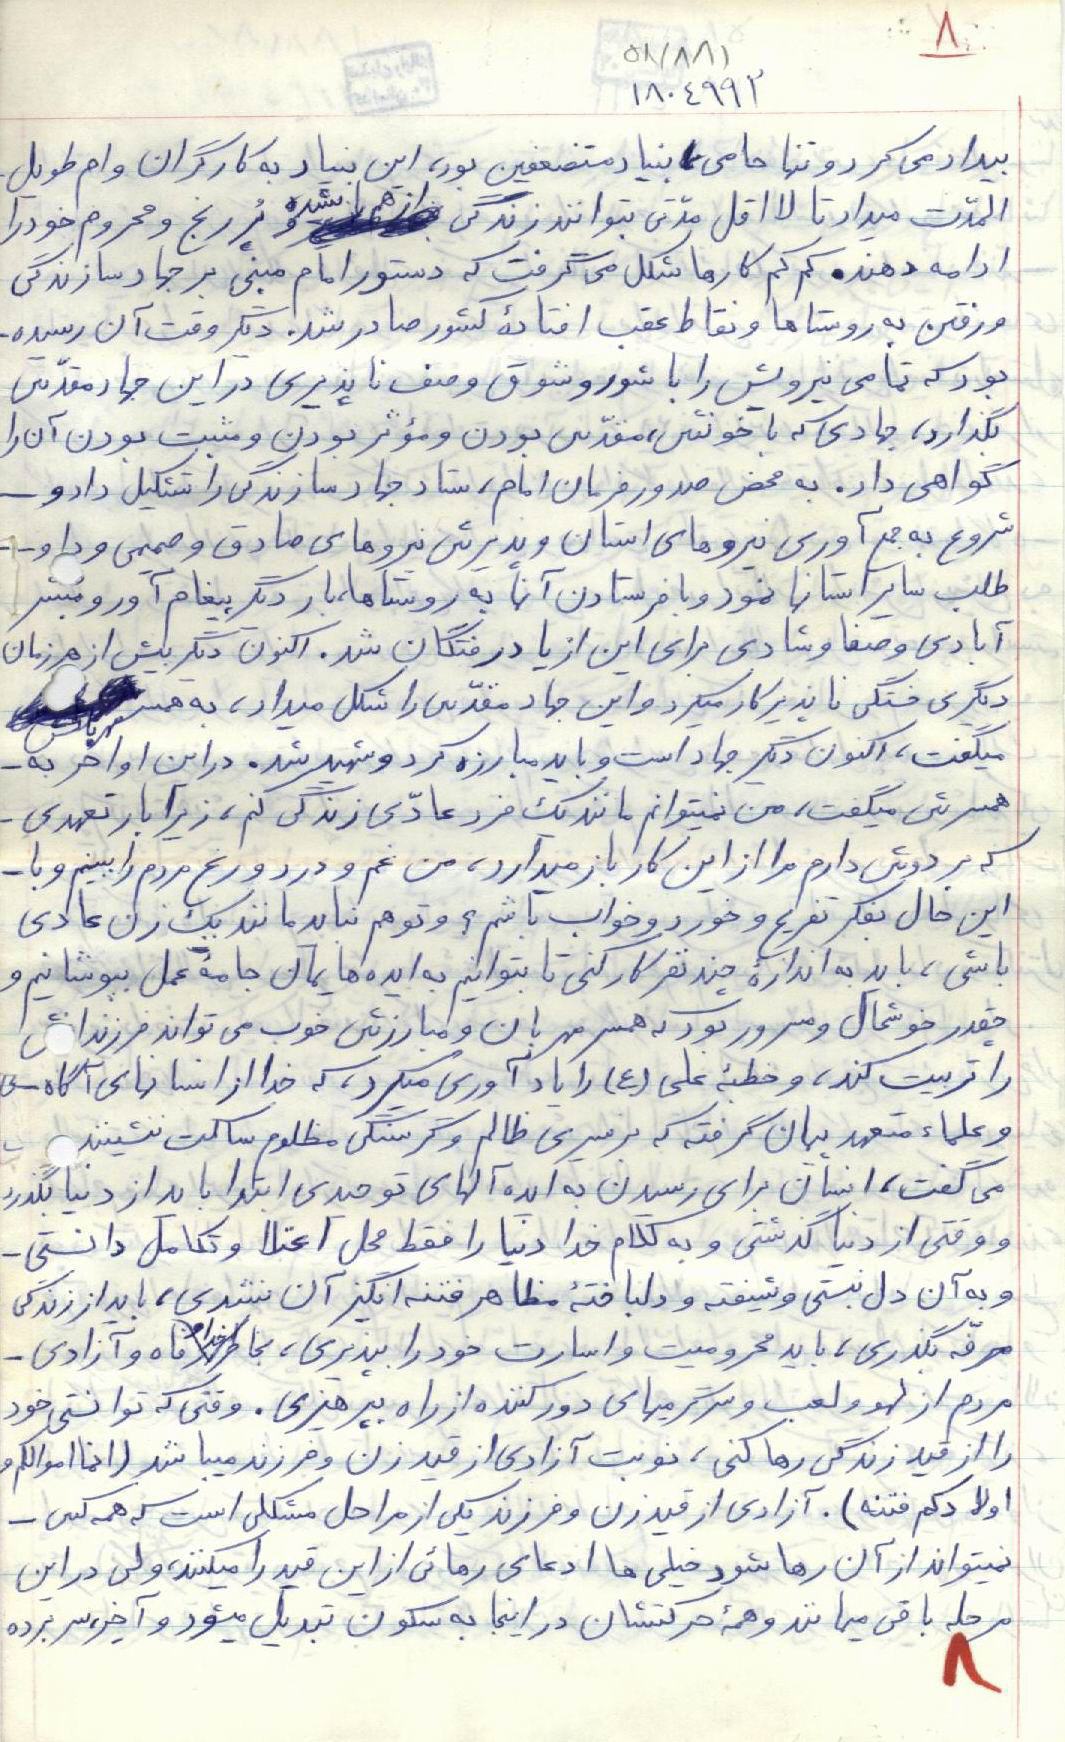 ۸
۵۸/۸۸۱
۱۸۰٤۹۹۲
بیداد می کرد و تنها حامی بنیاد مستضعفین بود، این بنیاد به کارگران وام طویل-
المدّت میداد تا لااقل مدّتی بتوانند زندگی از هم پاشیده و پُر رنج و محروم خود را
ادامه دهند. کم کم کارها شکل می گرفت که دستور امام مبنی بر جهاد سازندگی
و رفتن به روستاها و نقاط عقب افتادهٔ کشور صادر شد. دیگر وقت آن رسیده-
بود که تمامی نیرویش را با شور و شوق وصف ناپذیری در این جهاد مقدّس
بگذارد، جهادی که با خونش، مقدّس بودن و مؤثر بودن و مثبت بودن آن را
گواهی داد. به محض صدور فرمان امام، ستاد جهاد سازندگی را تشکیل داد و -
شروع به جمع آوری نیروهای استان و پذیرش نیروهای صادق و صمیمی و داو--
طلب سایر استانها نمود و با فرستادن آنها به روستاها، بار دیگر پیغام آور و مبشر
آبادی و صفا و شادی برای این از یاد رفتگان شد. اکنون دیگر بیش از هر زمان
دیگری خستگی ناپذیر کار میکرد و این جهاد مقدّس را شکل میداد، به همسر
میگفت، اکنون دیگر جهاد است و باید مبارزه کرد و شهید شد. در این اواخر به-
همسرش میگفت، من نمیتوانم مانند یک فرد عادّی زندگی کنم، زیرا بار تعهدی -
که بر دوش دارم مرا از این کار باز میدارد، من غم و درد و رنج مردم را ببینم و با-
این حال بفکر تفریح و خورد و خواب باشم؟ و تو هم نباید مانند یک زن عادی
باشی، باید به اندازهٔ چند نفر کار کنی تا بتوانیم به ایده هایمان جامهٔ عمل بپوشانیم و
چقدر خوشحال و مسرور بود که همسر مهربان و مبارزش خوب می تواند فرزندانش
را تربیت کند، و خطبهٔ علی (ع) را یادآوری میکرد، که خدا از انسانهای آگاه-
و علماء متعهد پیمان گرفته که بر سیری ظالم و گرسنگی مظلوم ساکت ننشینند
می گفت، انسان برای رسیدن به ایده آلهای توحیدی ابتدا باید از دنیا بگذرد
و وقتی از دنیا گذشتی و به کلام خدا دنیا را فقط محل اعتلا و تکامل دانستی-
و به آن دل نبستی و شیفته و دلباختهٔ مظاهر فتنه انگیز آن نشدی، باید از زندگی
مرفّه بگذری، باید محرومیت و اسارت خود را بپذیری، بخاطر خدا رفاه و آزادی-
مردم از لهو و لعب و سرگرمیهای دور کننده از راه بپرهیزی. وقتی که توانستی خود
را از قید زندگی رها کنی، نوبت آزادی از قید زن و فرزند میباشد (انما اموالکم و
اولادکم فتنه). آزادی از قید زن و فرزند یکی از مراحل مشکلی است که همه کس -
نمیتواند از آن رها شود خیلی ها ادعای رهائی از این قید را میکنند، ولی در این
مرحله باقی میمانند و همهٔ حرکتشان در اینجا به سکون تبدیل میشود و آخر، سر برده
۸